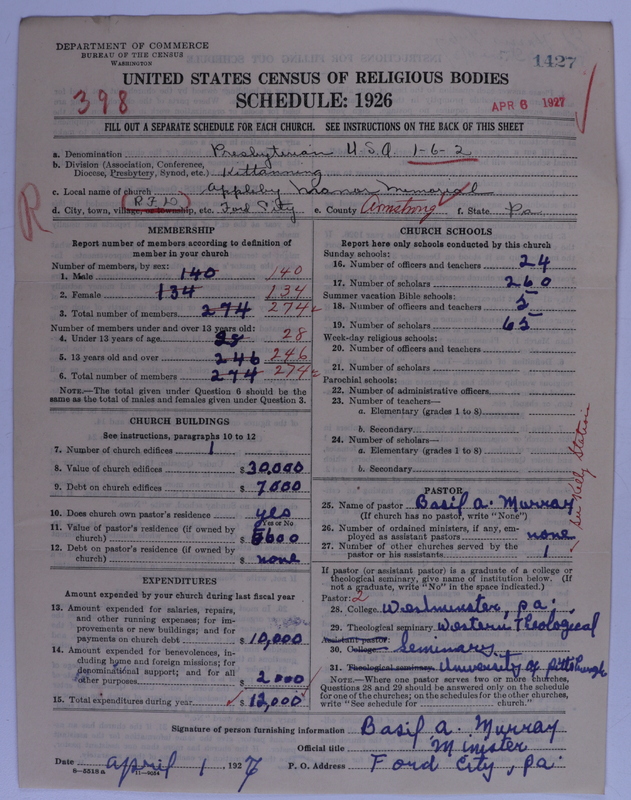 DEPARTMENT OF COMMERCE
BUREAU OF THE CENSUS
WASHINGTON
1427
UNITED STATES CENSUS OF RELIGIOUS BODIES
398
SCHEDULE: 1926
APR 6 1927
FILL OUT A SEPARATE SCHEDULE FOR EACH CHURCH. SEE INSTRUCTIONS ON THE BACK OF THIS SHEET
a. Denomination Presbyterian U.S.A. 1-6-2
b. Division (Association, Conference, Diocese, Presbytery, Synod, etc.) Kittanning
c. Local name of church Appleby Manor Memorial
R
d. City, town, village, or township, etc. R.F.D. Ford City e. County Armstrong f. State Pa.
MEMBERSHIP
Report number of members according to definition of
member in your church
Number of members, by sex:
1. Male 140 140
2. Female 134 134
3. Total number of members 274 274
Number of members under and over 13 years old:
4. Under 13 years of age 28 28
5. 13 years old and over 246 246
6. Total number of members 274 274
NOTE.—The total given under Question 6 should be the
same as the total of males and females given under Question 3.
CHURCH BUILDINGS
See instructions, paragraphs 10 to 12
7. Number of church edifices 1
8. Value of church edifices $ 30,000
9. Debt on church edifices $ 7,000
10. Does church own pastor's residence? yes
Yes or No
11. Value of pastor's residence (if owned by
church) $ 5600
12. Debt on pastor's residence (if owned by
church) $ none
EXPENDITURES
Amount expended by your church during last fiscal year
13. Amount expended for salaries, repairs,
and other running expenses; for im-
provements or new buildings; and for
payments on church debt $ 10,000
14. Amount expended for benevolences, in-
cluding home and foreign missions; for
denominational support; and for all
other purposes $ 2000
15. Total expenditures during year $ 12,000
CHURCH SCHOOLS
Report here only schools conducted by this church
Sunday schools:
16. Number of officers and teachers 24
17. Number of scholars 260
Summer vacation Bible schools:
18. Number of officers and teachers 5
19. Number of scholars 65
Week-day religious schools:
20. Number of officers and teachers
21. Number of scholars
Parochial schools:
22. Number of administrative officers
23. Number of teachers—
a. Elementary (grades 1 to 8)
b. Secondary
24. Number of scholars—
a. Elementary (grades 1 to 8)
b. Secondary
PASTOR
25. Name of pastor Basil A. Murray
(If church has no pastor, write "None")
26. Number of ordained ministers, if any, em-
ployed as assistant pastors none
27. Number of other churches served by the
pastor or his assistants 1
See Kelly Station
If pastor (or assistant pastor) is a graduate of a college or
theological seminary, give name of institution below. (If
not a graduate, write "No" in the space indicated.)
Pastor: 2
28. College Westminster, Pa.
29. Theological seminary Western Theological
Assistant pastor:
30. College Seminary
31. Theological seminary University of Pittsburgh
NOTE.—Where one pastor serves two or more churches,
Questions 28 and 29 should be answered only on the schedule
for one of the churches; on the schedules for the other churches,
write "See schedule for church."
Signature of person furnishing information Basil A. Murray
Official title Minister
Date April 1, 1927 P. O. Address Ford City, Pa.
8—5518a 11—9034